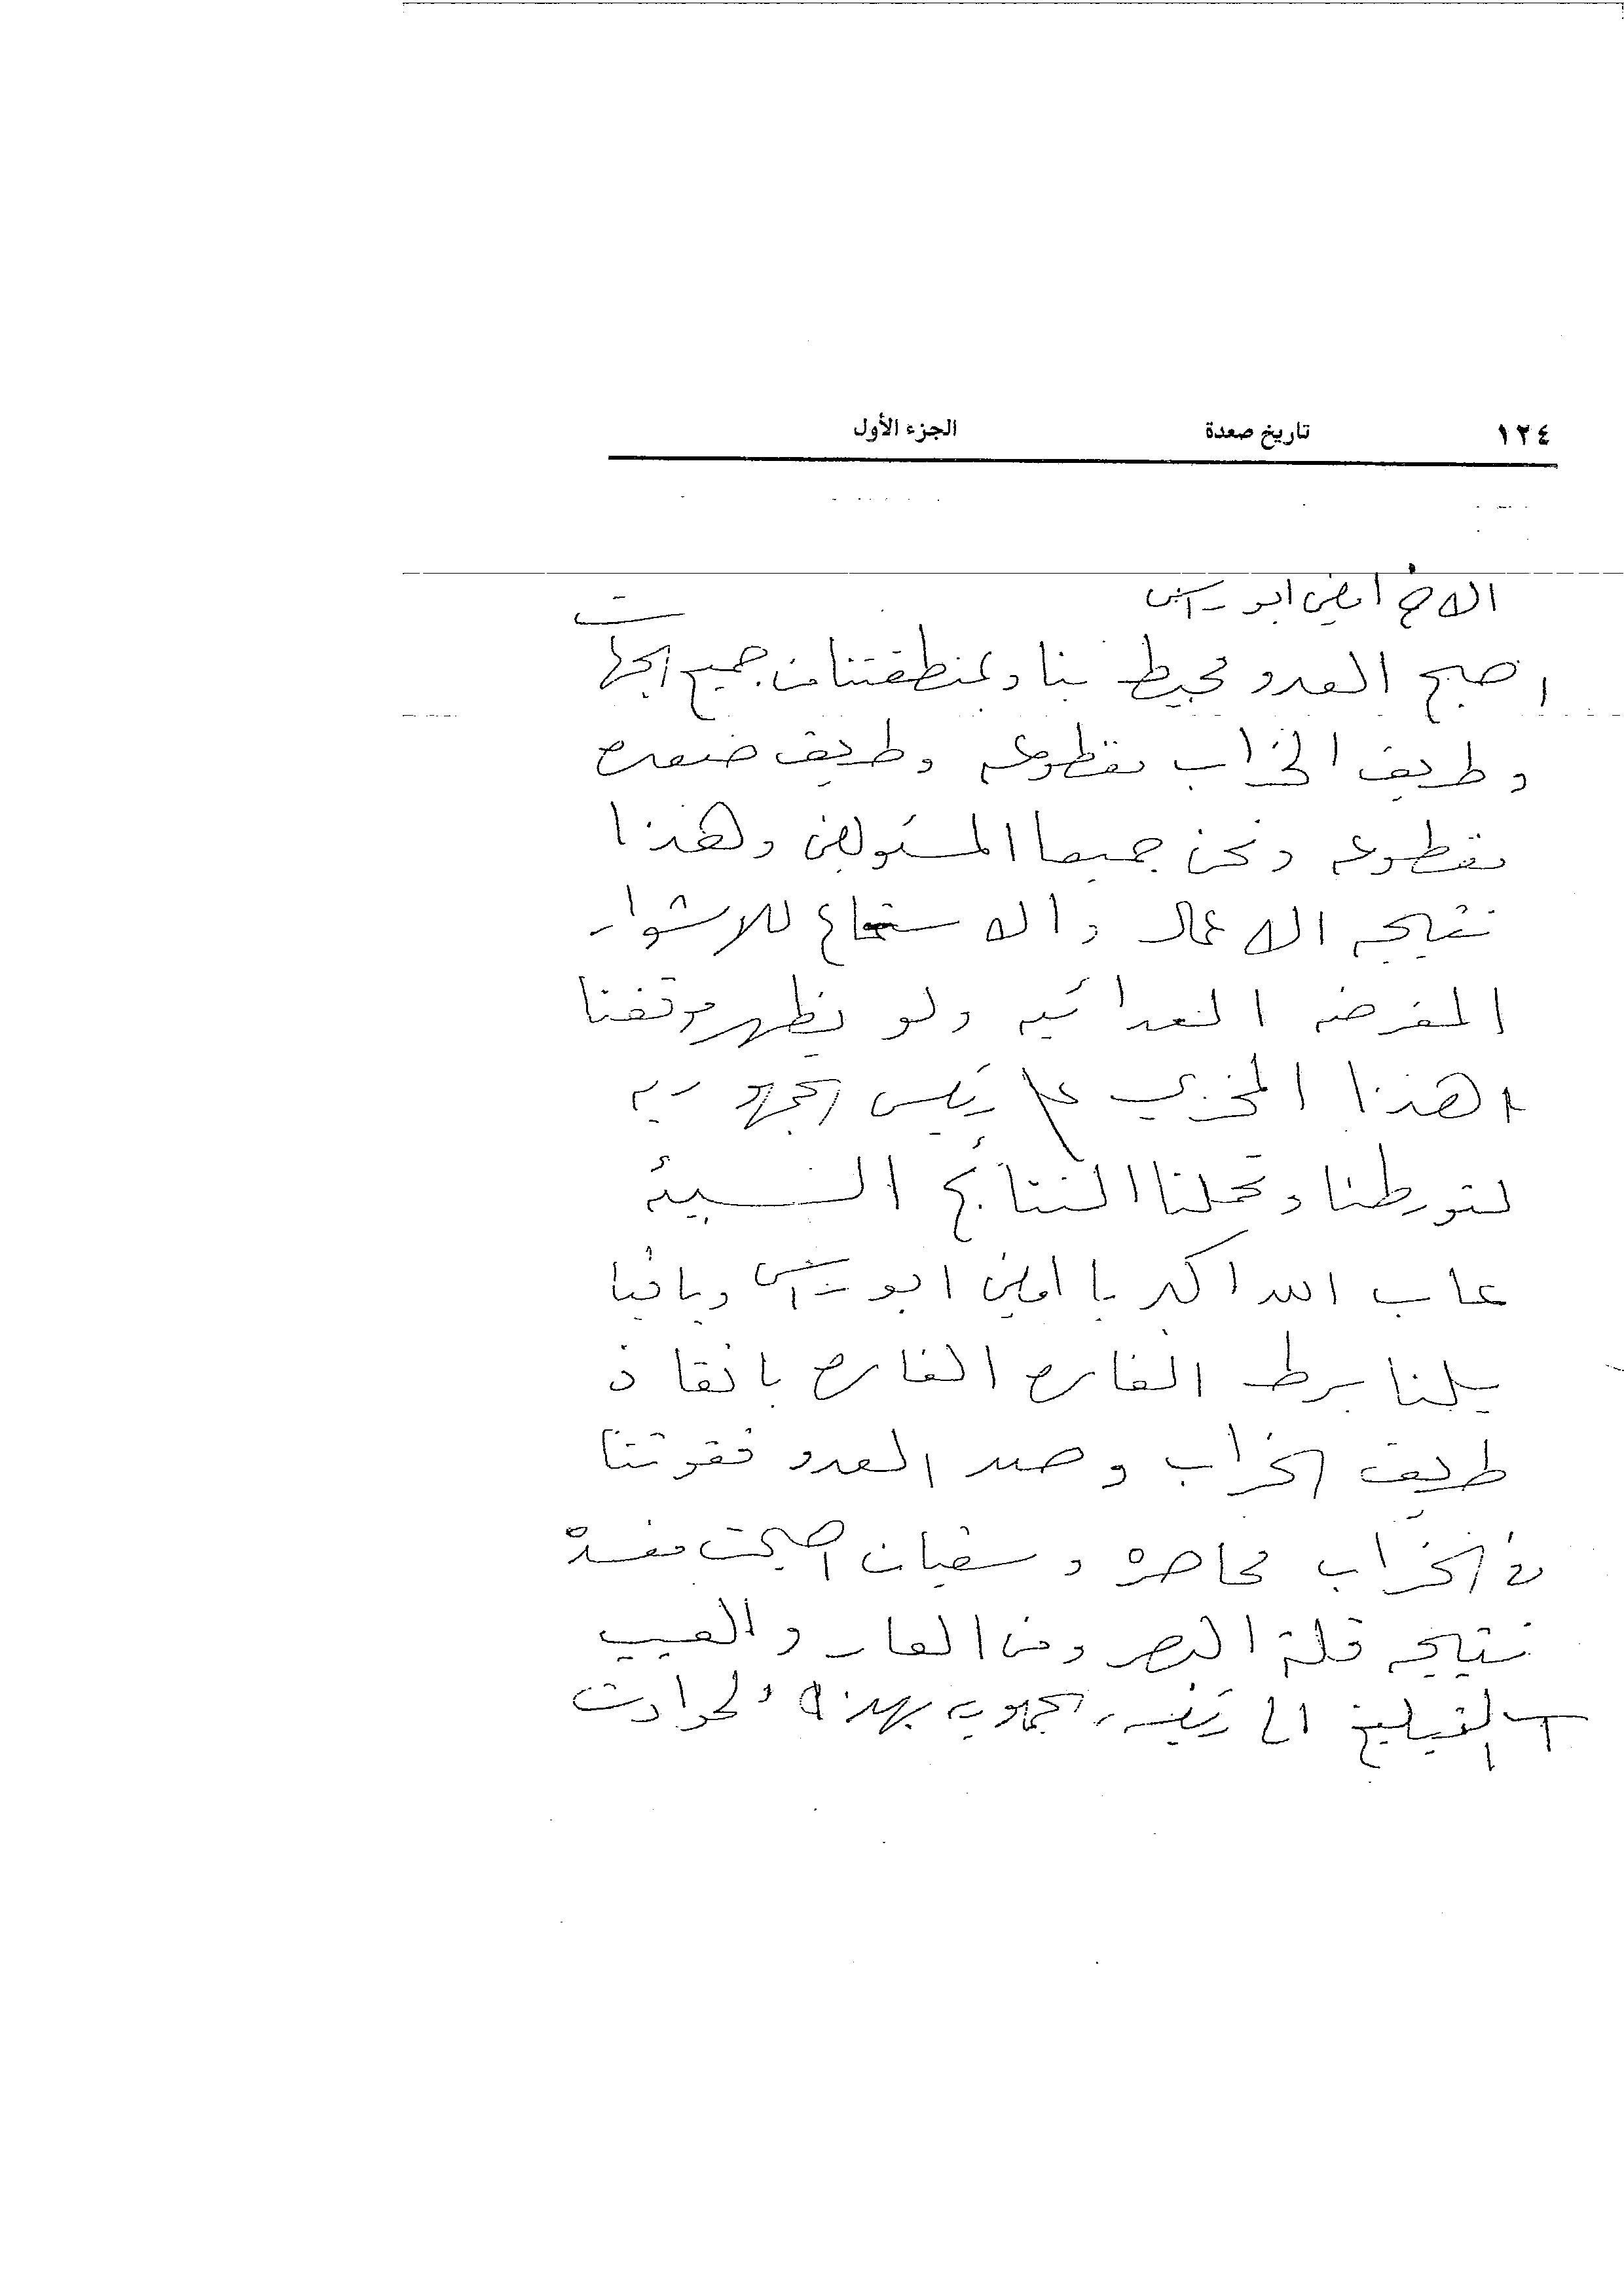 ١٢٤ تاريخ صعدة الجزء الأول
الاخ امين ابو راس
اصبح العدو محيط بنا وبمنطقتنا من جميع الجهات
وطريق الخراب مقطوعه وطريق صعده
مقطوعه ونحن جميعا المسئولين وهذا
نتيجه الاعمال والاستماع للاشوار
المغرضه العدائيه ولو يظهر موقفنا
هذا المخزي على رئيس الجمهوريه
لتورطنا وتحملنا النتائج السيئه
عاب الله اكبر يا امين ابو راس ويا
برط الغاره الغاره بانقاذ
طريق الخراب وصد العدو فقوتنا
في الخراب محاصره وسفيان اصبحت مفسده
نتيجه قلة البصر ومن العار والعيب
التبليغ الى رئيس الجمهوريه بهذه الحوادث